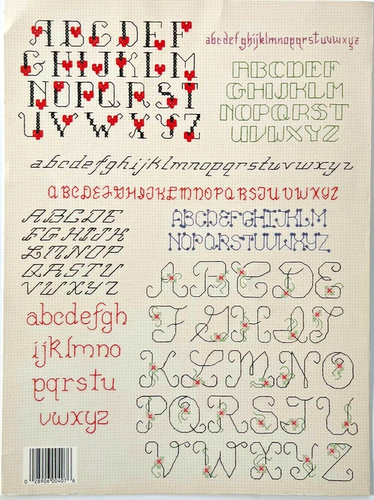 ABCDEF
GHIJKLM
NOPQRST
UVWXYZ
abcdefghijklmnopqrstuvwxyz
ABCDEF
GHIJKLM
NOPQRST
UVWXYZ
abcdefghijklmnopqrstuvwxyz
ABCDEFGHIJKLMNOPQRSTUVWXYZ
ABCDE
FGHIJK
LMNOP
QRSTU
VWXYZ
ABCDEFGHIJKLM
NOPQRSTUVWXYZ
abcdefgh
ijklmno
pqrstu
vwxyz
ABCDE
FGHIJ
KLMNO
PQRSTU
VWXYZ
0 28906 00407 6